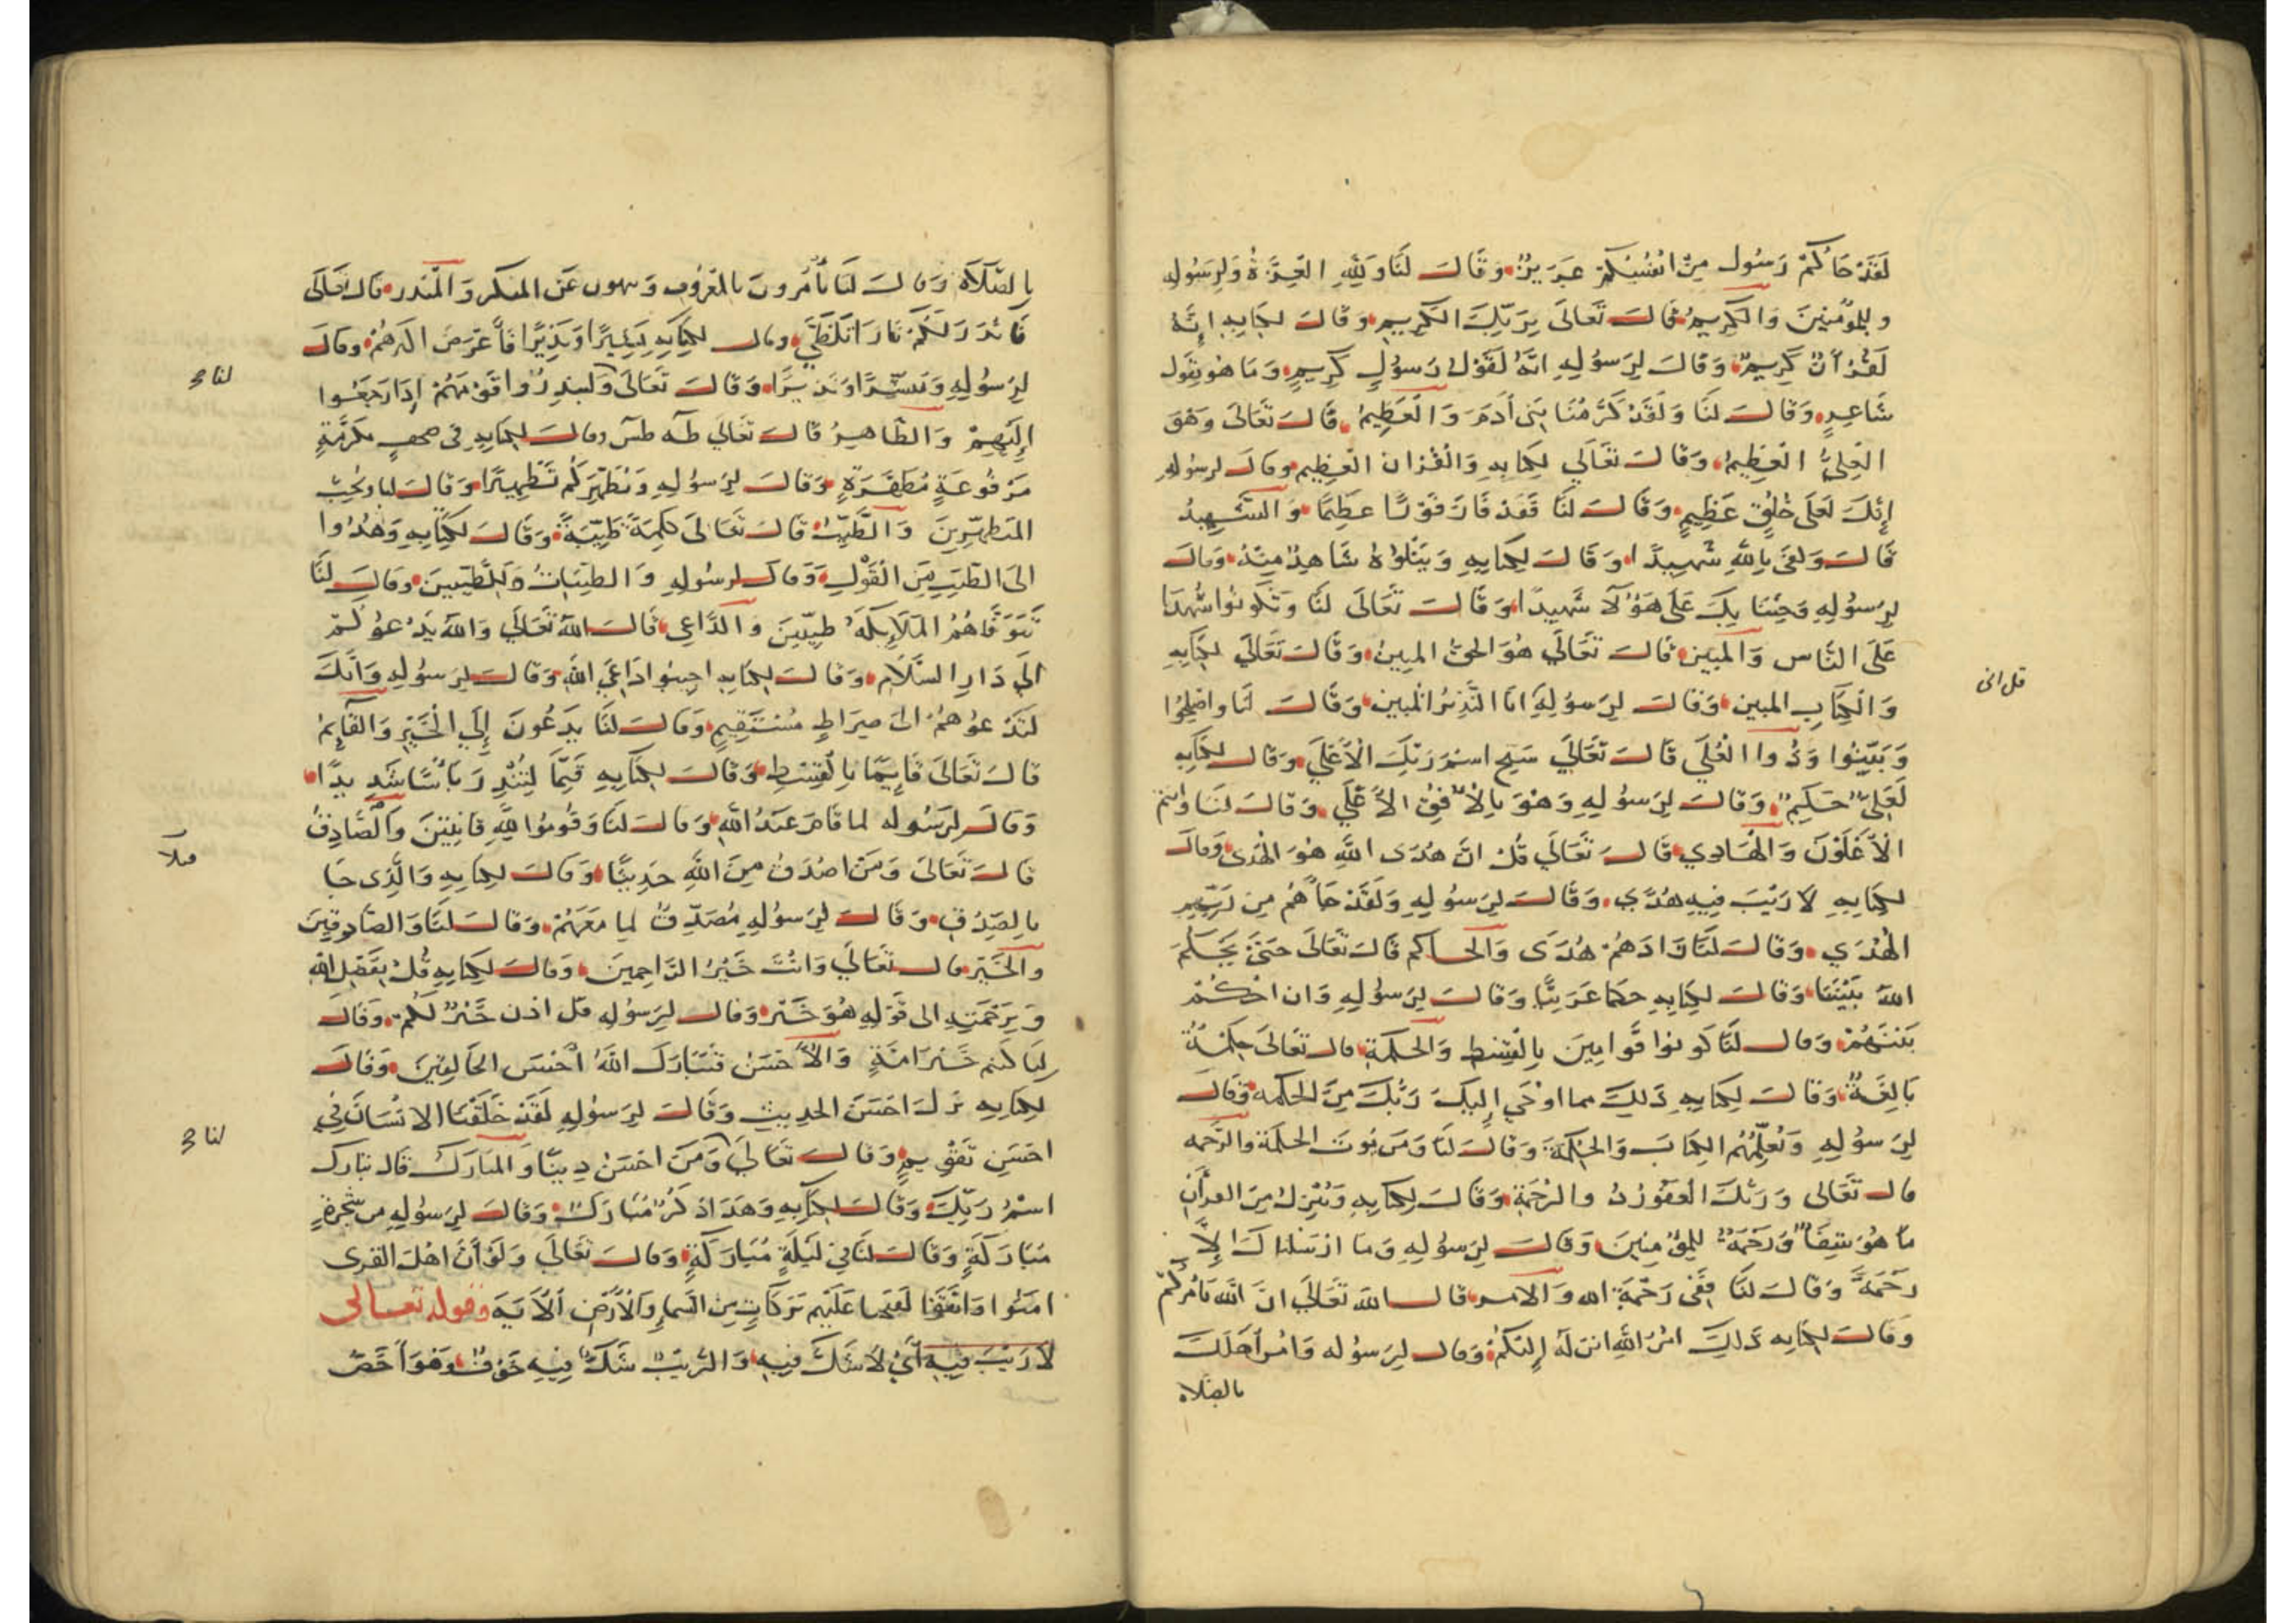 لَقَدْ جَاكُمْ رَسُول مِنْ انفُسِكُمْ عَزيزٌ وَقَالَ لنَا وَلِلّهِ العِزَّةُ وَلِرَسُولِهِ
وللمؤمنِينَ وَالكَرِيمُ قالَ تَعَالَى بِرَبِّكَ الكَرِيمِ وَقَالَ لكِتابِهِ إِنَّهُ
لَقُرْآنٌ كَرِيمٌ وَقَالَ لِرَسُولِهِ انَّهُ لَقَوْلُ رَسُولٍ كَرِيمٍ وَمَا هُو بِقَول
شَاعِرٍ وَقَالَ لَنَا وَلَقَدْ كَرَّمْنَا بَنِى أدَمَ وَالعَظِيمُ قَالَ تَعَالَى وَهُوَ
العَلِىُّ العَظِيمُ وَقَالَ تَعَالَي لِكتَابِهِ وَالقُرْانَ العَظِيم وقالَ لرسُولِهِ
إِنَّكَ لَعَلَى خُلُقٍ عَظِيمٍ وَقَالَ لَنَا فَقَدْ فَازَ فَوْزًا عظِيمًا وَالشَّهِيدُ
قَالَ وَكفَى بِاللهِ شَهِيدًا وَقَالَ لِكتابِهِ وَيَتْلُوهُ شَاهِدٌ مِنْهُ وَقالَ
لِرَسُولِهِ وَجِئْنَا بِكَ عَلَى هَؤُلَا شَهِيدًا وَقَالَ تَعَالَى لَنَا وَتَكُونُوا شُهَدَا
عَلَى النَّاسِ وَالمُبين قالَ تَعَالَي هُوَ الحقُّ المبِينُ وَقَالَ تَعَالَي لكِتَابِهِ
وَالْكِتَابِ المبين وَقَالَ لِرَسُولِهِ انَا النَّذِيرُ المبين وَقَالَ لنَا واصْلَحُوا
وَبَيَّنُوا وَذُوا العُلَي قَالَ تَعَالَي سَبِّحِ اسْمَ رَبِّكَ الأَعْلَي وَقَالَ لكِتَابِهِ
لَعَلِىٌّ حَكِيمٌ وَقَالَ لِرَسُولِهِ وَهُوَ بِالأُفِقِ الأَعْلَي وَقَالَ لنَا وانتم
الأَعْلَوْنَ وَالهَادِي قَالَ تَعَالَي قُلْ انَّ هُدَى اللَّهِ هُوَ الهُدَى وَقالَ
لِكتَابِهِ لَا رَيْبَ فِيهِ هُدًى وَقَالَ لِرَسُولِهِ وَلَقَدْ جَاهُمْ مِن رَبِّهِم
الهُدَي وَقَالَ لنَا زَادَهُمْ هُدًى وَالحَاكم قَالَ تَعَالَى حَتىَّ يَحْكُمَ
اللهُ بَيْنَنَا وَقَالَ لكِتَابِهِ حكمًا عَرَبِيًّا وَقَالَ لِرَسُولِهِ وَان احْكُمْ
بَيْنَهُمْ وَقالَ لَنَا كُونُوا قَوَّامِينَ بِالْقِسْطِ وَالحِكمَةِ قالَ تَعَالَى حِكْمَةٌ
بَالِغَةٌ وَقَالَ لِكتَابِهِ ذَلِكَ مما اوْحَي إِلَيكَ رَبُّكَ مِنَ الحكمه وَقَالَ
لِرَسُولِهِ وَيُعَلِّمُهُمُ الكِتَابَ وَالحِكْمَةَ وَقَالَ لنَا وَمَن يُوتَ الحكمَةَ والرَّحمه
قالَ تَعَالى وَرَبُّكَ الغَفُورُ ذُو الرَّحْمَةِ وَقَالَ لكِتَابِهِ وَنُنَزِّلُ مِنَ القرأنِ
مَا هُوَ شِفَا وَرَحْمَةٌ للمؤْمِنِينَ وَقَالَ لِرَسُولِهِ وَمَا ارْسَلْنَاكَ إِلَّا
رَحْمَةً وَقَالَ لَنَا فَفِى رَحْمَةِ الله وَالامر قَالَ اللهُ تَعَالَي انَّ اللَّهَ يَامُرُكُمْ
وَقَالَ لكِتَابِه ذَلِكَ امْرُ اللَّهِ انزَلَهُ إِلَيْكُمْ وَقالَ لِرَسُولِه وَامُرْ أَهلَكَ
بالصَّلاه
قل انى
بِالصَّلَاةِ وَقالَ لَنَا تَأمُرُونَ بالمَعْرُوفِ وَتنهون عَنِ المنكر وَالمُنذر قالَ تعَالَى
فَانْذَرْتُكُمْ نَارًا تَلَظَّي وقال لِكتَابِهِ بَشِيرًا وَنَذِيرًا فَأَعْرَضَ اكثرهُمْ وقالَ
لِرَسُولِهِ وَمُبَشِّرًا وَنَذِيرًا وَقَالَ تَعَالَى وَلينذِرُوا قَوْمَهُمْ إِذَا رَجَعُوا
إِلَيْهِمْ وَالطَّاهِرُ قَالَ تَعَالَي طه طس وقالَ لِكتَابِهِ فى صحفٍ مكرَّمَةٍ
مَرْفُوعَةٍ مُطَهَّرَةٍ وَقَالَ لِرَسُولِهِ وَيُطَهِّرَكُمْ تَطْهِيرًا وَقَالَ لنا وَيُحِبُّ
المُتَطَهِّرِينَ وَالطَّيِّبُ قَالَ تَعَالَى كلِمَةً طَيِّبَةً وَقَالَ لكِتَابِهِ وَهُدُوا
الىَ الطَّيِّبِ مِنَ الْقَوْلِ وَقَالَ لرسُولِهِ وَالطيّبَاتُ لِلطَّيِّبِينَ وَقَالَ لنَا
تَتَوَفَّاهُمُ المَلَايِكَةُ طيِّبِينَ وَالدَّاعِى قَالَ اللهُ تَعَالَي وَاللهُ يَدْعُوكُمْ
الَي دَارِ السَّلَامِ وَقَالَ لِكتَابِهِ اجِيبُوا دَاعِيَ اللهِ وَقَالَ لِرَسُولِهِ وَانَّكَ
لَتَدْعُوهُمْ الىَ صِرَاطٍ مُسْتَقِيمٍ وَقَالَ لنَا يَدْعُونَ إِلَي الْخَيْرِ وَالقَايِمُ
قَالَ تَعَالَى قَايِمًا بِالْقِسْطِ وَقَالَ لِكتَابِهِ قَيِّمًا لِيُنْذِرَ بَأسًا شَدِيدًا
وَقَالَ لِرَسُولِه لما قَامَ عَبْدُ اللَّهِ وَقَالَ لنَا وَقُومُوا لِلَّهِ قَانِتِينَ وَالصَّادِقُ
قَالَ تَعَالَى وَمَنْ اصْدَقُ مِنَ اللَّهِ حَدِيثًا وَقَالَ لكِتابِهِ وَالَّذِى جَا
بالصِّدْقِ وَقَالَ لِرَسُولِهِ مُصَدِّقٌ لِمَا مَعَهُمْ وَقَالَ لنَا وَالصَّادِقِينَ
وَالخَيْر قالَ تَعَالَي وَانْتَ خَيْرُ الرَّاحِمِينَ وَقَالَ لكِتَابِهِ قُلْ بِفَضْلِ الله
وَبِرَحْمَتِهِ الى قَوْلِهِ هُوَ خَيْرٌ وَقَالَ لِرَسُولِهِ قل اذن خَيْرٌ لَكُمْ وَقَالَ
لنَا كنتم خَيْرَ امَّةٍ وَالأَحْسَنُ فَتَبَارَكَ اللَّهُ أَحْسَنُ الخَالِقِينَ وَقَالَ
لِكتَابِهِ نَزَّلَ احْسَنَ الحدِيثِ وَقَالَ لِرَسُولِهِ لَقَدْ خَلَقْنَا الانْسَانَ فِي
احْسَنِ تَقْوِيمٍ وَقَالَ تَعَالَي وَمَنْ احْسَنُ دِينًا وَالمُبَارَكُ قَالَ تَبَارَكَ
اسْمُ رَبِّكَ وَقَالَ لِكتَابِهِ وَهَذَا ذِكْرٌ مُبَارَكٌ وَقَالَ لِرَسُولِهِ مِن شَجَرَةٍ
مُبَارَكَةٍ وَقَالَ لنَا فِي لَيْلَةٍ مُبَارَكَةٍ وَقَالَ تَعَالَي وَلَوْ أَنَّ اهْلَ القرى
امَنُوا وَاتَّقَوْا لَفَتَحنا عَلَيْهِم بَرَكَاتٍ مِنَ السَّماءِ وَالأَرْضِ الأَيَه وَقوله تعالى
لَا رَيْبَ فِيهِ أَيْ لَا شَكَّ فِيهِ وَالرَّيْبُ شَكٌّ فِيهِ خَوْفٌ وَهُوَ أَخَصُّ